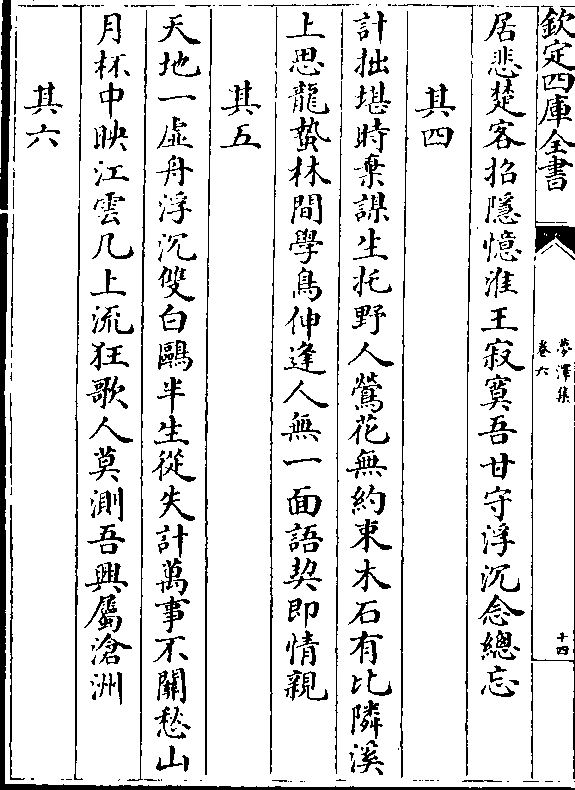 欽定四庫全書
夢澤集
卷六
十四
居悲楚客招隱憶淮王寂寞吾甘守浮沉念總忘
其四
計拙堪時棄謀生托野人鶯花無約束木石有比隣溪
上思龍蟄林間學鳥伸逢人無一面語契即情親
其五
天地一虛舟浮沉雙白鷗半生從失計萬事不關愁山
月杯中映江雲几上流狂歌人莫測吾興屬滄洲
其六